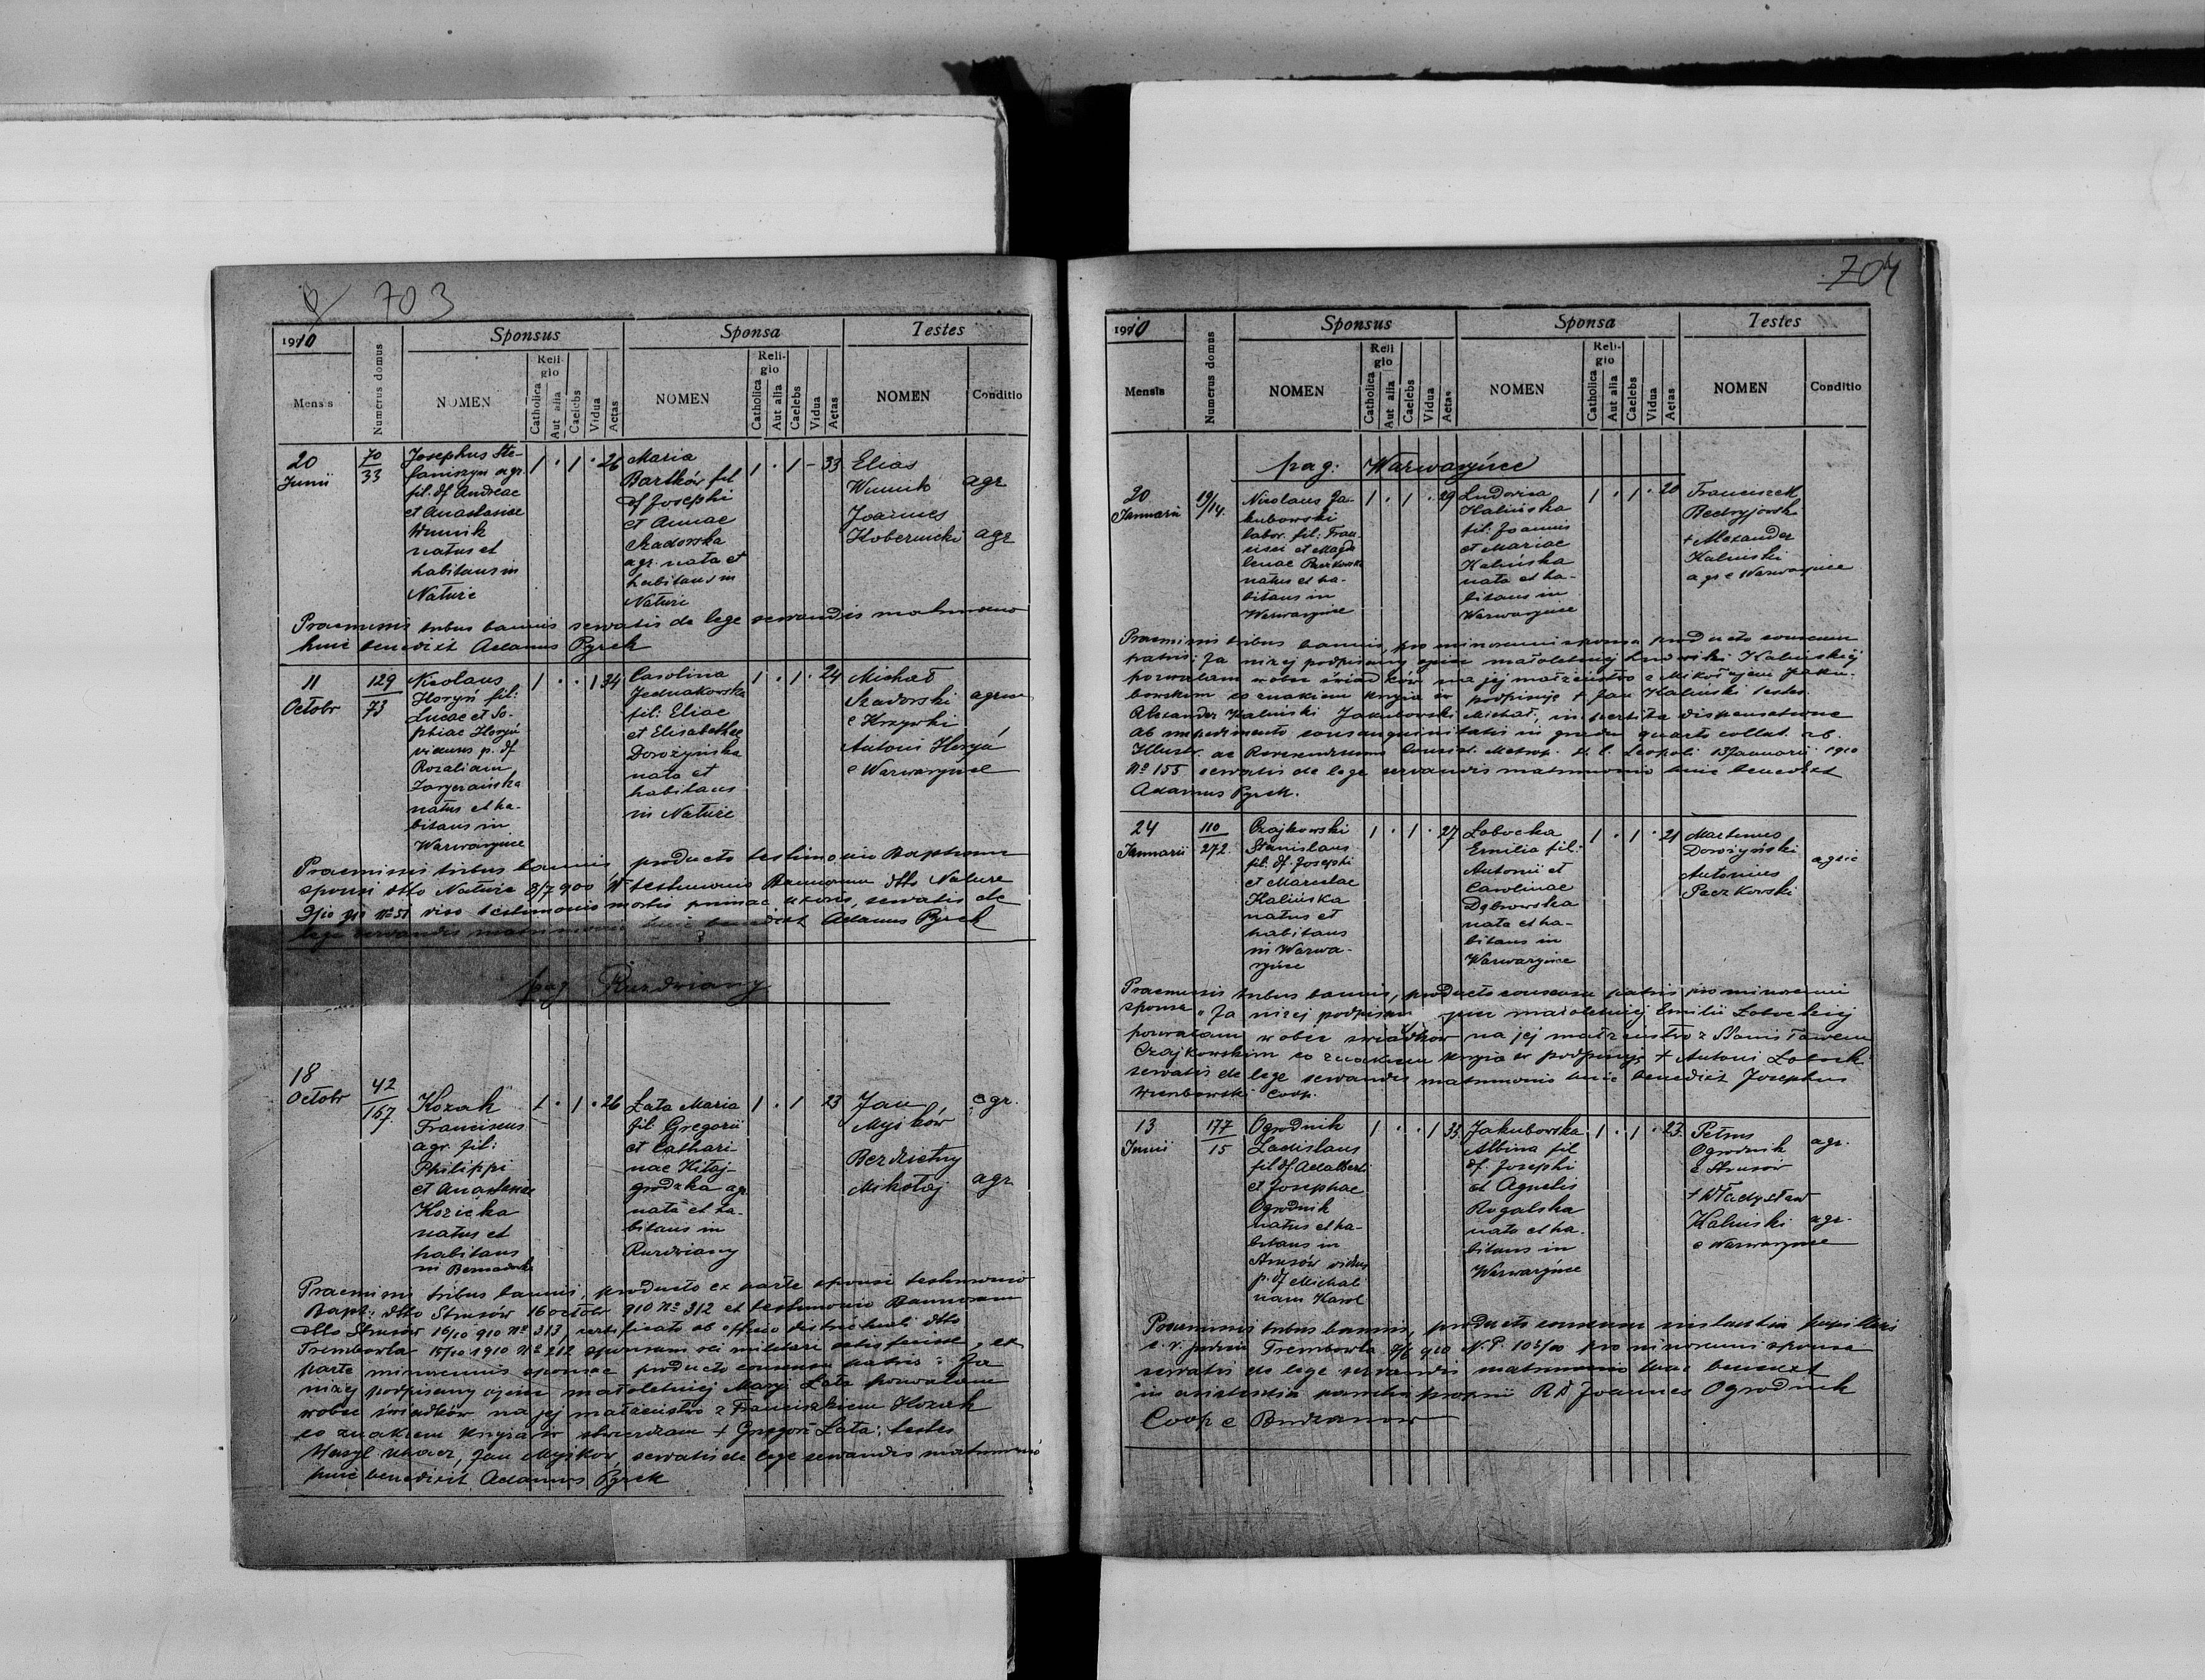 703
1910
Sponsus
Sponsa
Testes
Mensis
Numerus domus
NOMEN
Religio
Catholica
Aut alia
Caelebs
Vidua
Aetas
NOMEN
Religio
Catholica
Aut alia
Caelebs
Vidua
Aetas
NOMEN
Conditio
20
Junii
70
33
Josephus Ste-
faniszyn agr.
fil. df. Andreae
et Anastasiae
Wunnik
natus et
habitans in
Naturze
1 . 1 . 26
Maria
Bartków fil
df Josephi
et Annae
Szadorska
agr. nata et
habitans in
1 . 1 - 33
Elias
agr
Joannes
agr
Praemissis tribus bannis servatis de lege servandis matrimonio
huic benedixit Adamus Pyrek
11
Octobr
129
73
Nicolaus
Horyń fil:
Lucae et So-
phiae Horyń
viduus p. df.
Rosaliam
natus et ha-
bitans in
Warwaryńce
1 . . 1 34
Carolina
Jednakowska
fil: Eliae
et Elisabethae
Dorożyńska
nata et
habitans
in
1 . 1 . 24
Michał
Szadorski
e
Antoni Horyń
e Warwaryńce
Praemissis tribus bannis producto testimonio Baptismi
sponsi dtto 8/7 900 testimonio Bannorum dtto
910 № 51 viso testimonio mortis primae uxoris, servatis de
lege servandis matrimonio huic benedixit Adamus Pyrek
pag Ruzdwiany
18
Octobr
42
167
Kozak
Franciscus
agr. fil:
Philippi
et Anastasiae
Kozicka
natus et
habitans
in
1 . 1 . 26
Łata Maria
fil. Gregorii
et Cathari-
nae Kitaj-
grodzka agr.
nata et ha-
bitans in
Ruzdwiany
1 . 1 23
Jan
Myśków
agr.
Mikołaj
agr
Praemissis tribus bannis, producto ex parte sponsi testimonio
Bapt: dtto Strusów 16 octobr 910 № 312 et testimonio Bannorum
dtto Strusów 16/10 910 № 313, certificato ab officio districtuali dtto
Trembowla 15/10 1910 № 212 sponsum rei militari satisfecisse, ex
parte minorennis sponsae producto consensu patris: Ja
niżej podpisany ojciec małoletniej Maryi Łata pozwalam
wobec świadków na jej małżeństwo z Franciszkiem Kozak
co znakiem krzyża św stwierdzam + Grzegorz Łata; testes
Wasyl Jan Myśków servatis de lege servandis matrimonio
huic benedixit Adamus Pyrek
704
1910
Sponsus
Sponsa
Testes
Mensis
Numerus domus
NOMEN
Religio
Catholica
Aut alia
Caelebs
Vidua
Aetas
NOMEN
Religio
Catholica
Aut alia
Caelebs
Vidua
Aetas
NOMEN
Conditio
pag: Warwaryńce
20
Januarii
19/14.
Nicolaus Ja-
kubowski
labor. fil: Fran-
cisci et Magda
lenae
natus et ha-
bitans in
Warwaryńce
1 . 1 . 29
Ludovica
Kalińska
fil: Joannis
et Mariae
Kalińska
nata et ha-
bitans in
Warwaryńce
1 . 1 . 20
Franciszek
+ Alexander
Kaliński
agr e Warwaryńce
Praemissis tribus bannis, pro minorenni sponsa producto consensu
patris: Ja niżej podpisany ojciec małoletniej Ludwiki Kalińskiej
pozwalam wobec świadków na jej małżeństwo z Mikołajem Jaku-
bowskim co znakiem krzyża św podpisuję + Jan Kaliński testes.
Alexander Kaliński Jakubowski Michał, impertita dispensatione
ab impedimento consanguinitatis in gradu quarto collat. ab.
Illustr. ac Reverendissimo Consist. Metrop. r. l. Leopoli 13 Januarii 1910
№ 155 servatis de lege servandis matrimonio huic benedixit
Adamus Pyrek.
24
Januarii
110
272.
Czajkowski
Stanislaus
fil. df. Josephi
et Marcelae
Kalińska
natus et
habitans
in Warwa-
ryńce
1 . 1 . 27
Łobocka
Emilia fil:
Antonii et
Carolinae
Dąbrowska
nata et ha-
bitans in
Warwaryńce
1 . 1 . 21
Martinus
Dorożyński
Antonius
Paczkowski
Praemissis tribus bannis, producto consensu patris pro minorenni
sponsa "Ja niżej podpisany ojciec małoletniej Emilii Łobockiej
pozwalam wobec świadków na jej małżeństwo z Stanisławem
Czajkowskim co znakiem krzyża św podpisuję + Antoni
servatis de lege servandis matrimonio huic benedixit Josephus
Coop.
13
Junii
177
15
Ogrodnik
Ladislaus
fil df. Adalberti
et Josephae
Ogrodnik
natus et ha-
bitans in
Strusów viduus
p. df Michali
nam Karol
1 . . 1 33
Jakubowska
Albina fil
df. Josephi
et Agnetis
Rogalska
nata et ha.
bitans in
Warwaryńce
1 . 1 . 23.
Petrus
Ogrodnik
e Strusów
agr.
+ Władysław
Kaliński
e Warwaryńce
agr.
Praemissis tribus bannis, producto consensu instantia pupillari
c. r. judicii Trembowla 910 pro minorenni sponsa
servatis de lege servandis matrimonio huic benedixit
in assistentia parochi proprii RD Joannes Ogrodnik
Coop e Budzanow